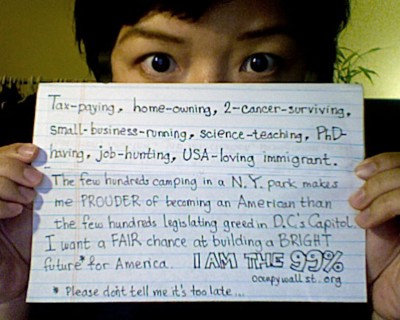 Tax-paying, home-owning, 2-cancer-surviving,
small-business-running, science-teaching, PhD-
having, job-hunting, USA-loving immigrant.
The few hundreds camping in a N.Y. park makes
me PROUDER of becoming an American than
the few hundreds legislating greed in D.C.'s Capitol.
I want a FAIR chance at building a BRIGHT
future* for America. I AM THE 99%
occupywallst.org
* Please don't tell me it's too late...